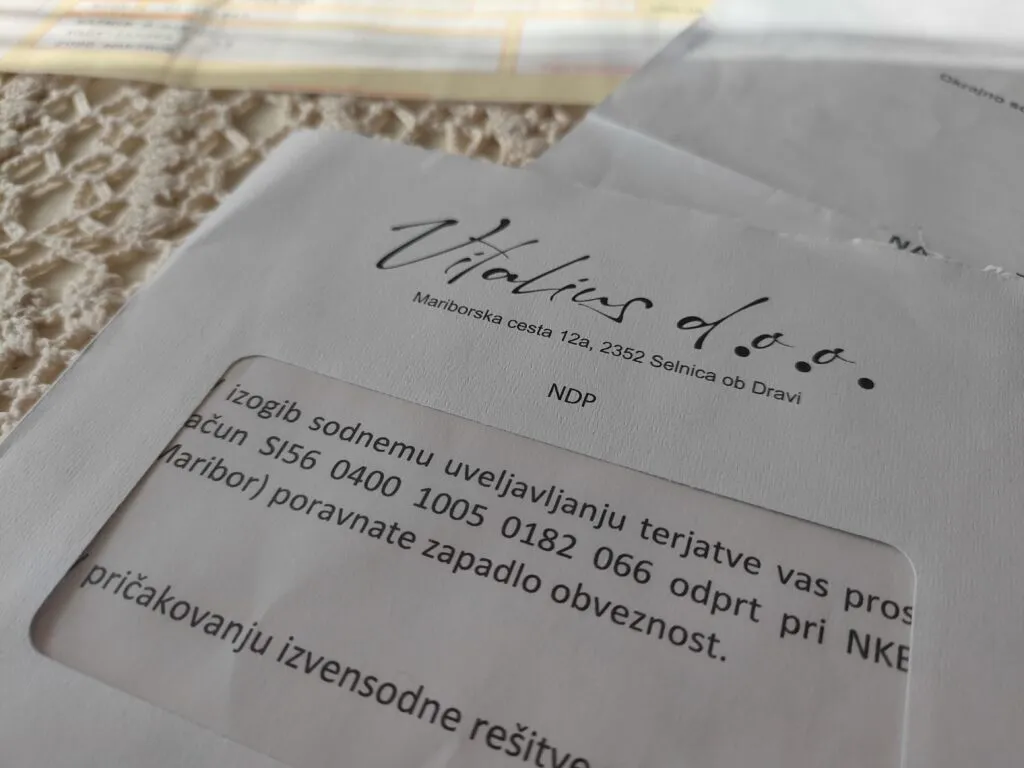 Okrajno so
NA
Vitalius d.o.o.
Mariborska cesta 12a, 2352 Selnica ob Dravi
NDP
izogib sodnemu uveljavljanju terjatve vas pros
ačun SI56 0400 1005 0182 066 odprt pri NKB
Maribor) poravnate zapadlo obveznost.
pričakovanju izvensodne rešitve